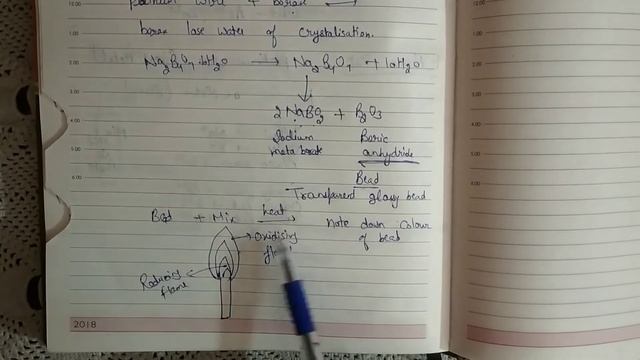 12.00
platinum wire + borax →
borax lose water of Crystalisation.
1.00
Na2B4O7.10H2O → Na2B4O7 + 10H2O
2.00
3.00
2 NaBO2 + B2O3
4.00
Sodium Boric
meta borate anhydride
5.00
Bead
6.00
Transparent glassy bead
Bead + Mix heat → Note down Colour
of bead
Oxidising
flame
Reducing
flame
2018
12.00
1.00
2.00
3.00
4.00
5.00
6.00